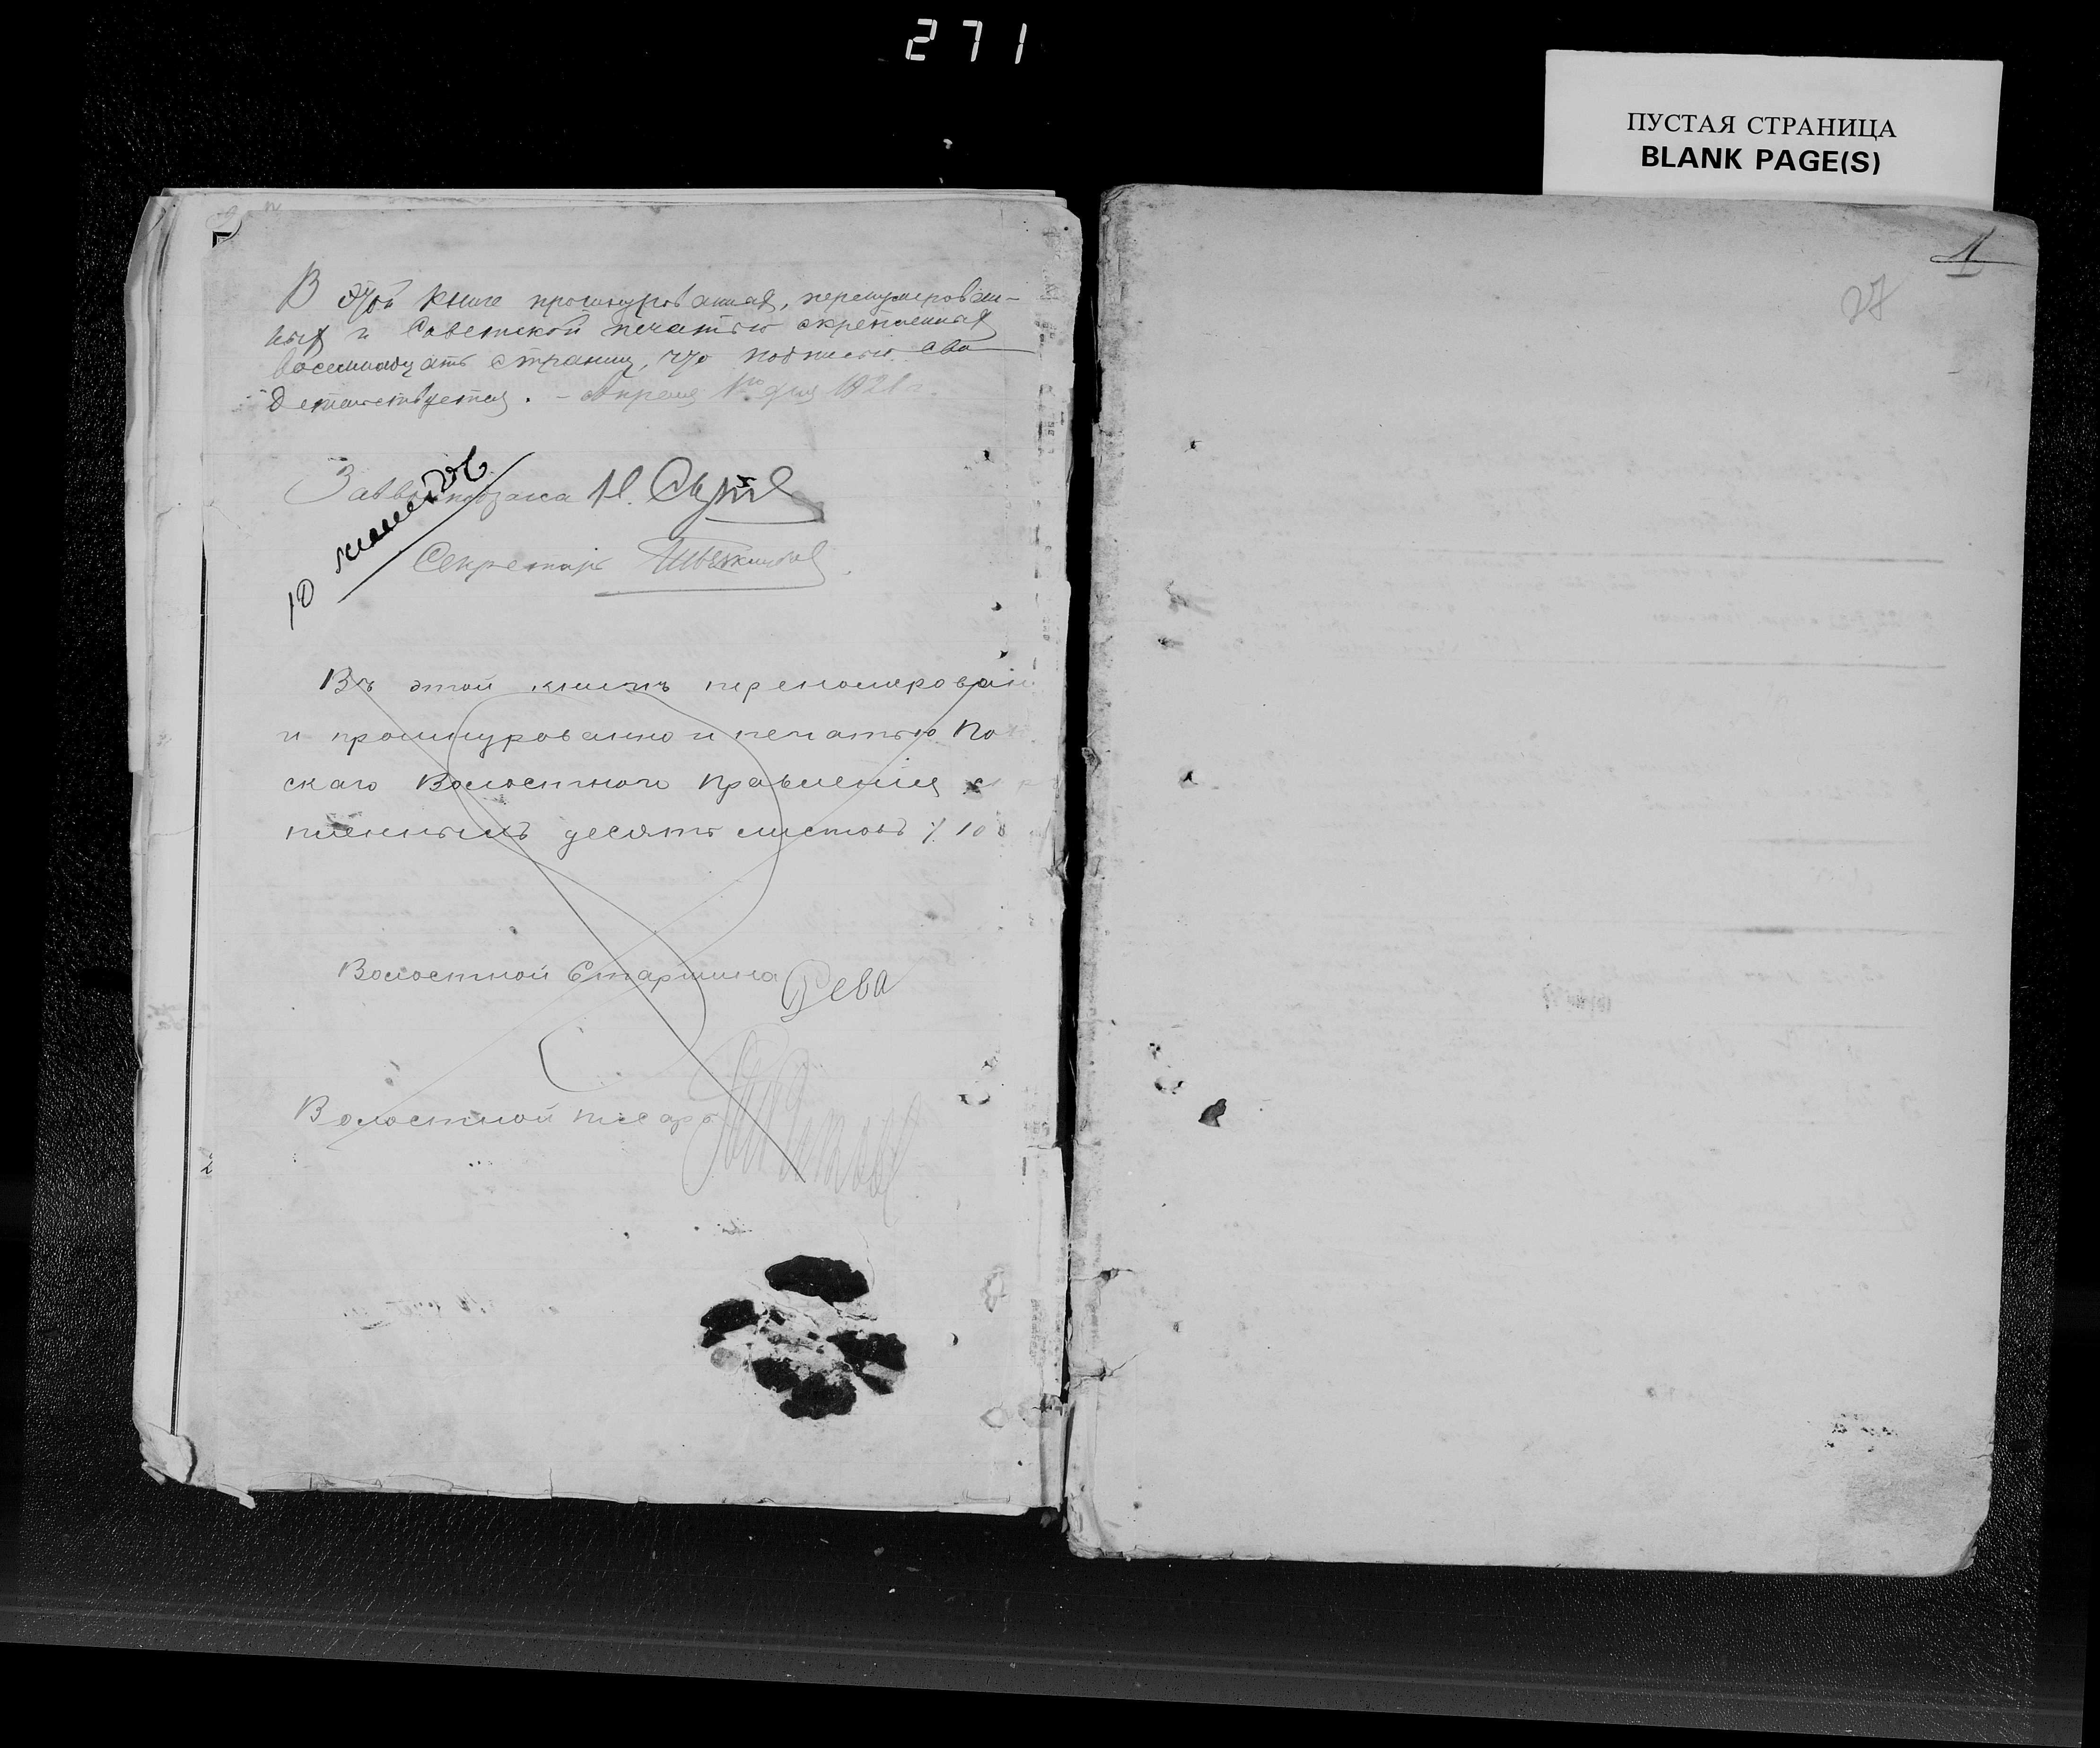 271
ПУСТАЯ СТРАНИЦА
BLANK PAGE(S)
В этой книге прошнурованная, перенумерован-
ных и Советской печатью скрепленная
восемнадцать страниц, что подписью сви
детельствуется. - Апреля 1го дня 1921 г.
10 листов
Секретарь
Въ этой книгѣ переномерован
и прошнурованно и печатью По
скаго Волостного Правленія
пленнымъ десять листовъ 10
Волостной Старшина Рева
Волостной писарь
1
27